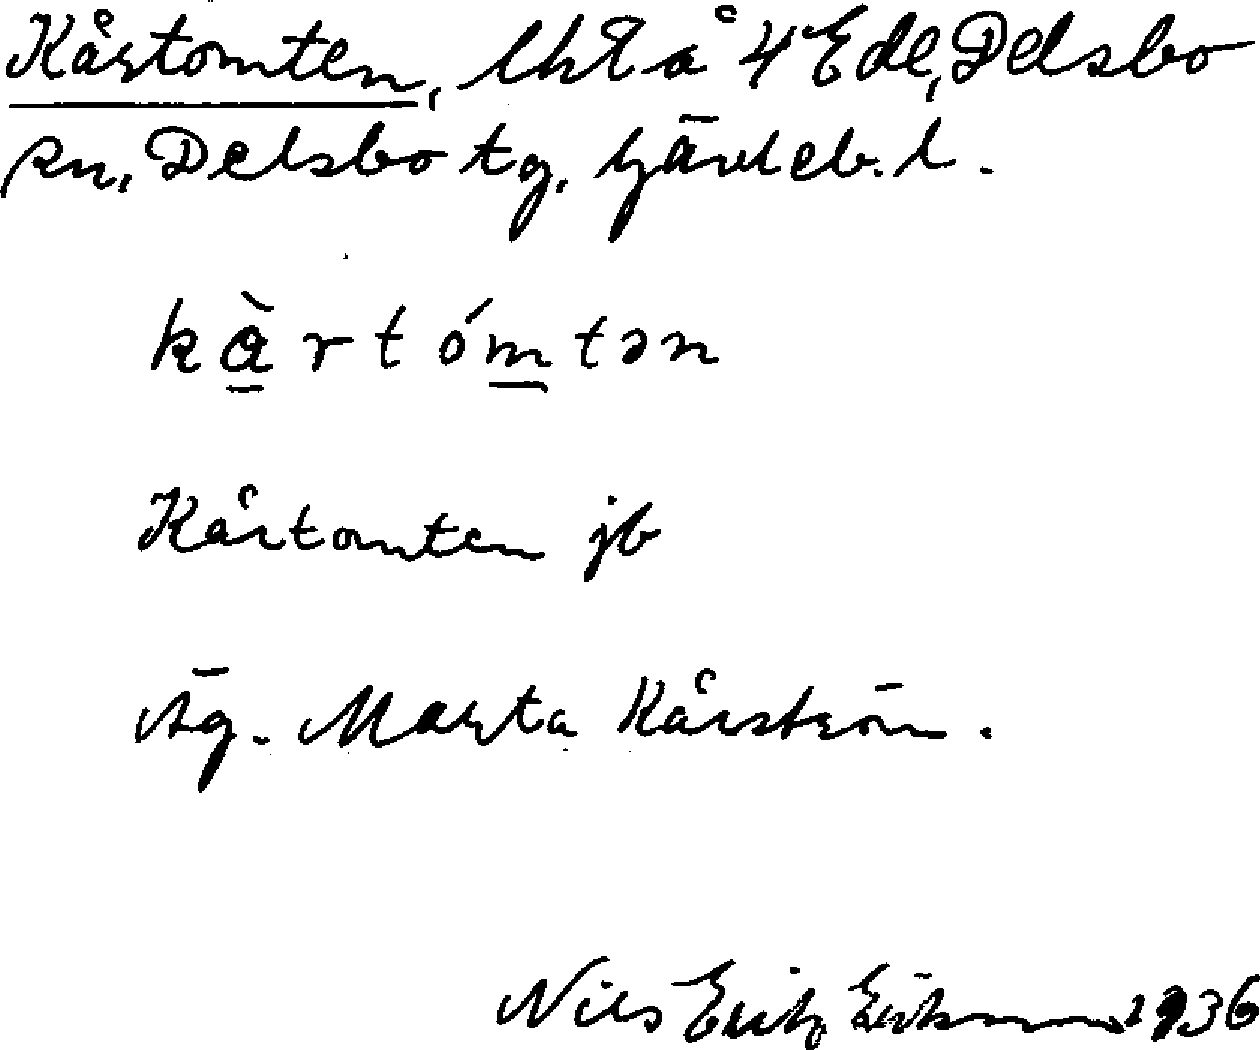 Kårtomten, lht å 4 Ede, Delsbo
sn, Delsbo tg, Gävleb. l.
kàrtómtən
Kårtomten jb
Äg. Marta Kårström.
Nils Erik Eriksson 1936